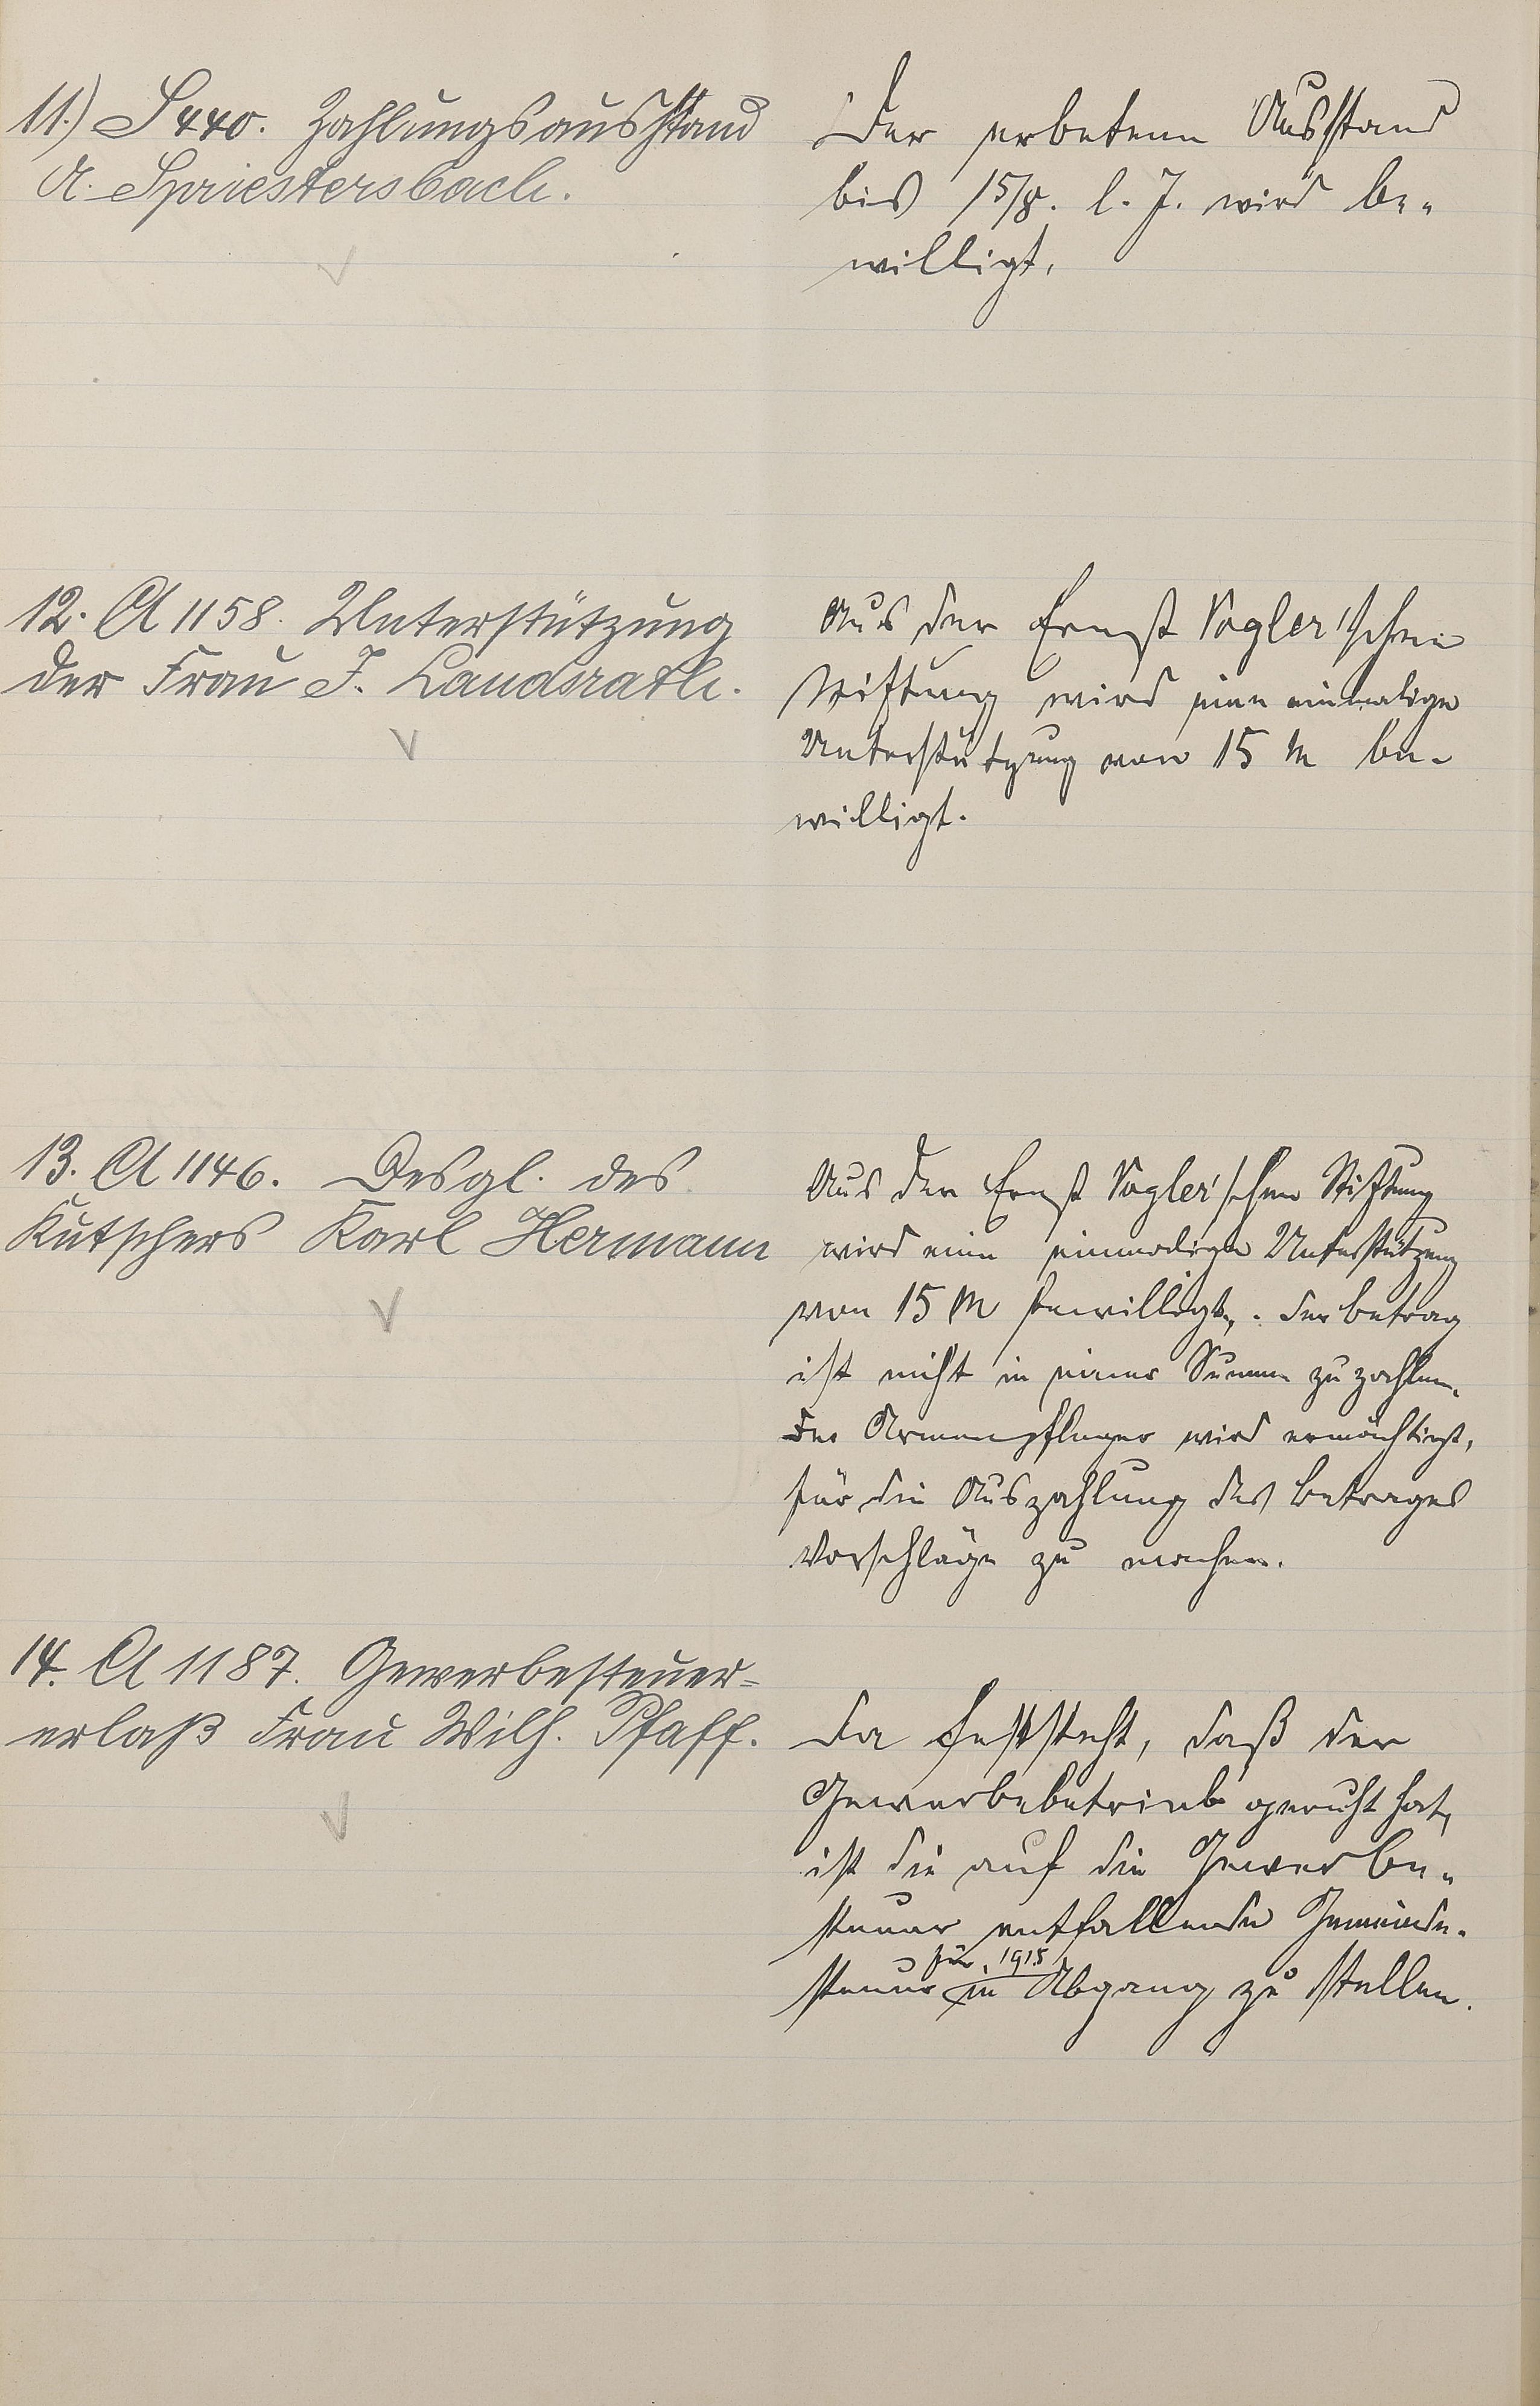 11.) S 440. Zahlungsausstand
A. Spriestersbach.
Der erbetene Ausstand
bis 15/8. l. J. wird be-
willigt.
12. A 1158. Unterstützung
der Frau J. Landsrath.
Aus der Ernst Vogler'schen
Stiftung wird eine einmalige
Unterstützung von 15 M be-
willigt.
13. A 1146. Desgl. des
Kutschers Karl Hermann
Aus der Ernst Vogler'schen Stiftung
wird eine einmalige Unterstützung
von 15 M bewilligt. Der Betrag
ist nicht in einer Summe zu zahlen.
Der Armenpfleger wird ermächtigt,
für die Auszahlung des Betrages
Vorschläge zu machen.
14. A 1187. Gewerbesteuer-
erlaß Frau Wilh. Pfaff.
Da feststeht, daß der
Gewerbebetrieb geruht hat,
ist die auf die Gewerbe-
steuer entfallende Gemeinde-
für 1915
steuer in Abgang zu stellen.